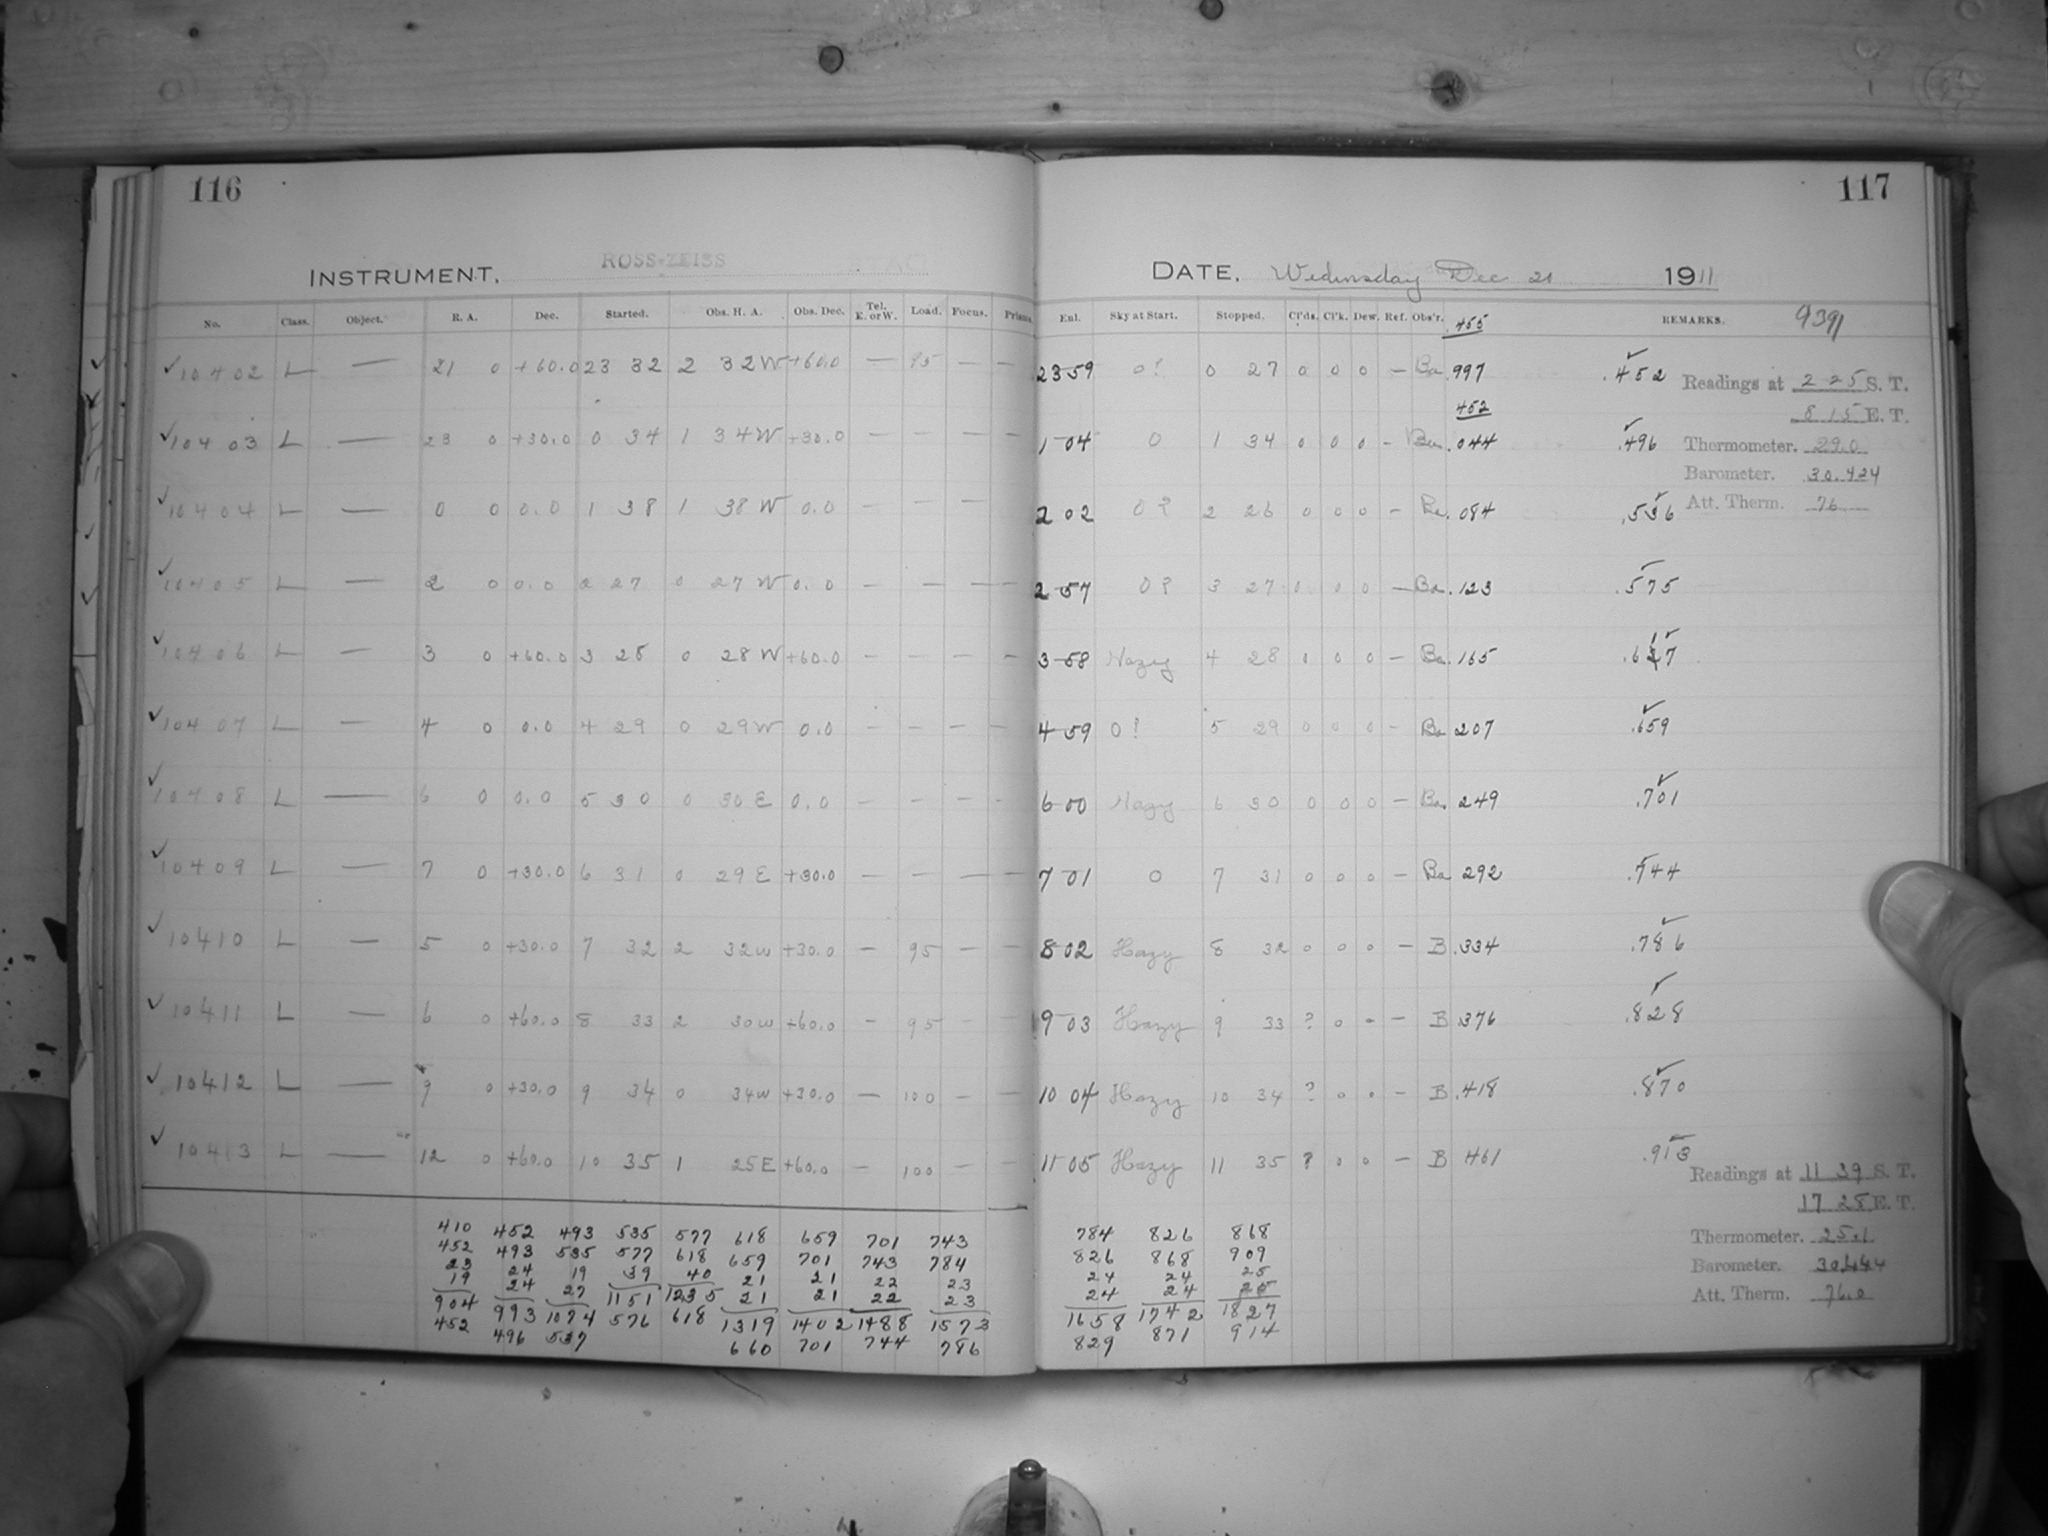 116
INSTRUMENT, ROSS-ZEISS
No. Class. Object. R. A. Dec. Started. Obs. H. A. Obs. Dec. Tel. E. or W. Load. Focus. Prisms.
10402 L — 21 0 +60.0 23 32 2 32W +60.0 — 95 — —
10403 L — 23 0 +30.0 0 34 1 34W +30.0 — — — —
10404 L — 0 0 0.0 1 38 1 38W 0.0 — — —
10405 L — 2 0 0.0 2 27 0 27W 0.0 — — — —
10406 L — 3 0 +60.0 3 28 0 28W +60.0 — — — —
10407 L — 4 0 0.0 4 29 0 29W 0.0 — — — —
10408 L — 6 0 0.0 5 30 0 30E 0.0 — — — —
10409 L — 7 0 +30.0 6 31 0 29E +30.0 — — — —
10410 L — 5 0 +30.0 7 32 2 32W +30.0 — 95 — —
10411 L — 6 0 +60.0 8 33 2 30W +60.0 — 95 — —
10412 L — 9 0 +30.0 9 34 0 34W +30.0 — 100 — —
10413 L — 12 0 +60.0 10 35 1 25E +60.0 — 100 — —
410 452 493 535 577 618 659 701 743
452 493 535 577 618 659 701 743 784
23 24 19 39 40 21 21 22 23
19 24 27 1151 1235 21 21 22 23
904 993 1074 576 618 1319 1402 1488 1573
452 496 537 660 701 744 786
117
DATE, Wednesday Dec 21 1911
Enl. Sky at Start. Stopped. Cl'ds. Cl'k. Dew. Ref. Obs'r. .455 REMARKS. 9391
23 59 0? 0 27 0 0 0 — Ba .997 .452
Readings at 2 25 S. T.
8 15 E. T.
452
1 04 0 1 34 0 0 0 - Ba .044 .496
Thermometer. 29.0
Barometer. 30.424
2 02 0? 2 26 0 0 0 - Ba .084 .536
Att. Therm. 76
2 57 0? 3 27 0 0 0 — Ba .123 .575
3 58 Hazy 4 28 0 0 0 — Ba .165 .617
4 59 0? 5 29 0 0 0 — Ba 207 .659
6 00 Hazy 6 30 0 0 0 — Ba 249 .701
7 01 0 7 31 0 0 0 — Ba 292 .744
8 02 Hazy 8 32 0 0 0 — B .334 .786
9 03 Hazy 9 33 ? 0 - — B .376 .828
10 04 Hazy 10 34 ? 0 0 — B .418 .870
11 05 Hazy 11 35 ? 0 0 — B 461 .913
Readings at 11 39 S. T.
17 28 E. T.
Thermometer. 25.1
Barometer. 30.444
Att. Therm. 76.0
784 826 868
826 868 909
24 24 25
24 24 25
1658 1742 1827
829 871 914